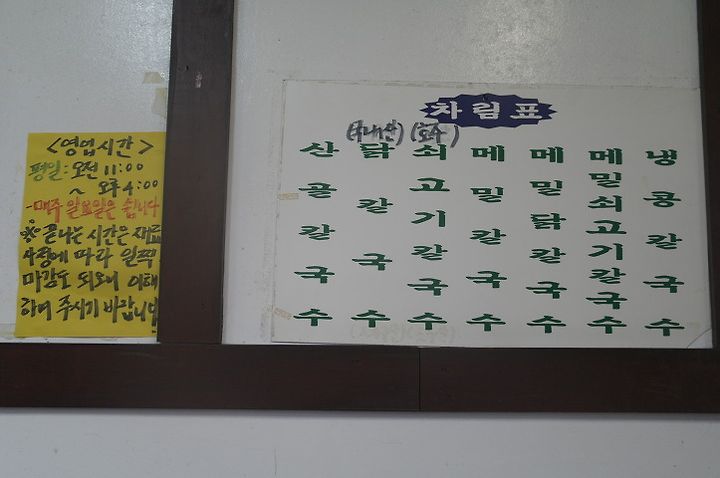 <영업시간>
평일: 오전 11:00
~ 오후 4:00
-매주 일요일은 쉽니다
※ 끝나는 시간은 재료
사정에 따라 일찍
마감도 되오니 이해
하여 주시기 바랍니다
차림표
(국내산) (호주)
산골칼국수
닭칼국수
쇠고기칼국수
메밀칼국수
메밀닭칼국수
메밀쇠고기칼국수
냉콩칼국수